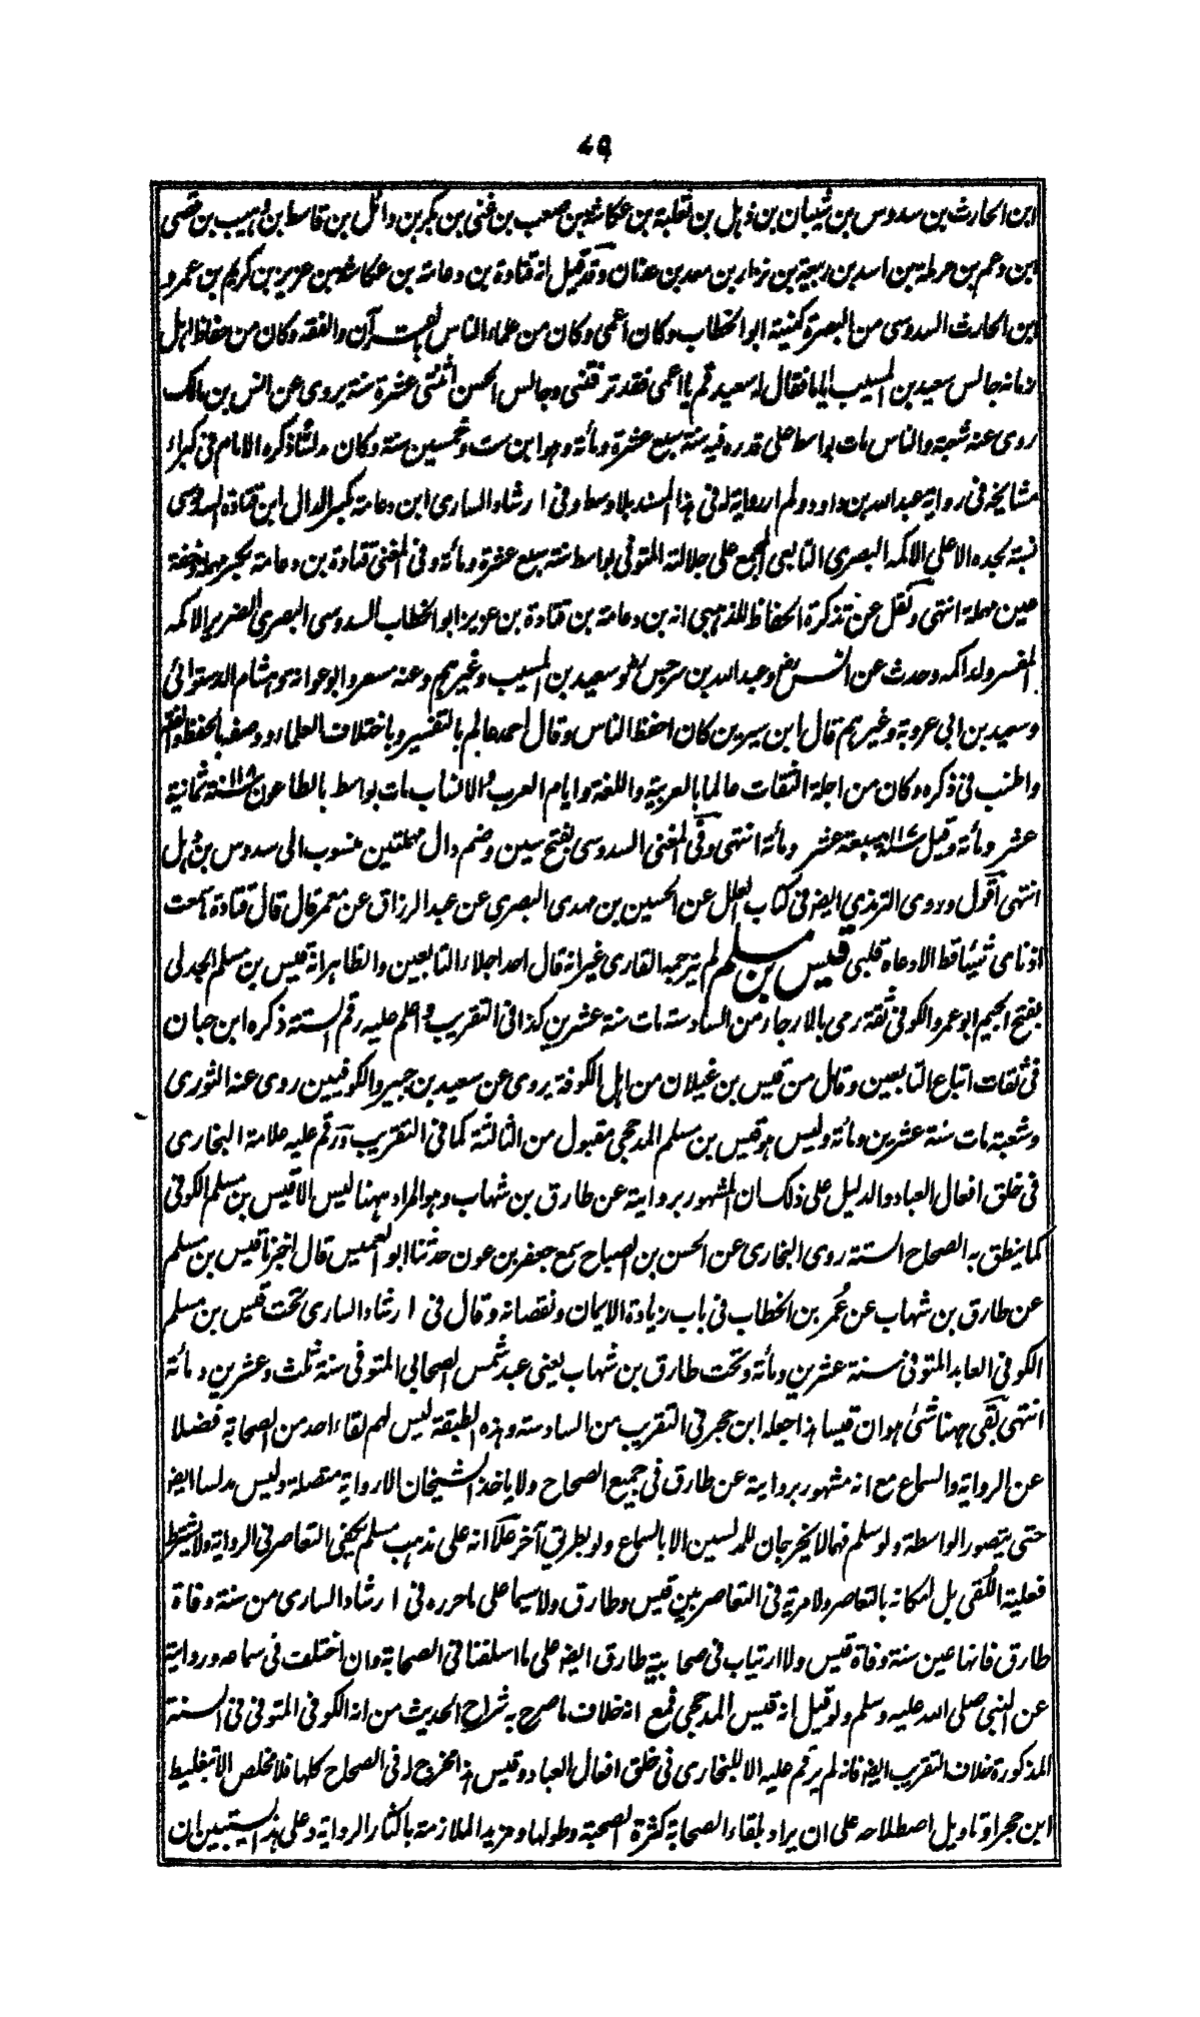 ٧٩
ابن الحارث بن سدوس بن شيبان بن ذهل بن ثعلبة بن عكاشة بن صعب بن غنى بن بكر بن وائل بن قاسط بن وهيب بن قصى
ابن دعم بن حرملة بن اسد بن ربيعة بن نزار بن معد بن عدنان وقد قيل انه قتادة بن دعامة بن عكاشة بن عزيز بن كريم بن عمرو
ابن الحارث السدوسى من البصرة كنيته ابو الخطاب وكان أعمى وكان من علماء الناس بالقرآن والفقه وكان من حفاظ اهل
زمانه جالس سعيد بن المسيب اياما فقال له سعيد قم يا اعمى فقد نزفتنى وجالس الحسن اثنتى عشرة سنة يروى عن انس بن مالك
روى عنه شعبة والناس مات بواسط على قدره فيه سنة سبع عشرة ومأة وهو ابن ست وخمسين سنة وكان مدلسا ذكره الامام فى كبراء
مشايخه فى رواية عبد الله بن داود ولم ار رواية له فى هذا المسند بلا وسط وفى ارشاد السارى ابن دعامة بكسر الدال ابن قتادة السدوسى
نسبة لجده الاعلى الاكمه البصرى التابعى المجمع على جلالته المتوفى بواسط سنة سبع عشرة ومأة وفى المغنى قتادة بن دعامة بكسر مهملة وخفة
عين مهملة انتهى ونقل عن تذكرة الحفاظ للذهبى انه بن دعامة بن قتادة بن عزيز ابو الخطاب السدوسى البصرى الضرير الاكمه
المفسر ولد اكمه وحدث عن انس رض وعبد الله بن سرجس رض وسعيد بن المسيب وغيرهم وعنه مسعر وابو عوانة وهشام الدستوائى
وسعيد بن ابى عروبة وغيرهم قال ابن سيرين كان احفظ الناس وقال احمد عالم بالتفسير وباختلاف العلماء ووصفه بالحفظ والفقه
واطنب فى ذكره وكان من اجلة الثقات عالما بالعربية واللغة وايام العرب والانساب مات بواسط بالطاعون سنة ١١٨ ثمانية
عشر ومأة وقيل سنة ١١٧ سبعة عشر ومأة انتهى وفى المغنى السدوسى بفتح سين وضم دال مهملتين منسوب الى سدوس بن ذهل
انتهى اقول وروى الترمذي ايضه فى كتاب العلل عن الحسين بن مهدى البصرى عن عبد الرزاق عن معمر قال قال قتادة ما سمعت
اذناى شيئا قط الا وعاه قلبى قيس بن مسلم لم يترجمه القارى غير انه قال احد اجلاء التابعين والظاهر انه قيس بن مسلم الجدلى
بفتح الجيم ابو عمرو الكوفى ثقة رمى بالارجاء من السادسة مات سنة عشرين كذا فى التقريب واعلم عليه رقم الستة ذكره ابن حبان
فى ثقات اتباع التابعين وقال من قيس بن غيلان من اهل الكوفة يروى عن سعيد بن جبير والكوفيين روى عنه الثورى
وشعبة مات سنة عشرين ومأة وليس هو قيس بن مسلم المدحجى مقبول من الثالثة كما فى التقريب ورقم عليه علامة البخارى
فى خلق افعال العباد والدليل على ذلك ان المشهور بروايته عن طارق بن شهاب وهو المراد ههنا ليس الا قيس بن مسلم الكوفى
كما ينطق به الصحاح الستة روى البخارى عن الحسن بن الصباح سمع جعفر بن عون حدثنا ابو العميس قال اخبرنا قيس بن مسلم
عن طارق بن شهاب عن عمر بن الخطاب فى باب زيادة الايمان ونقصانه وقال فى ارشاد السارى تحت قيس بن مسلم
الكوفى العابد المتوفى سنة عشرين ومأة وتحت طارق بن شهاب يعنى عبد شمس الصحابى المتوفى سنة ثلث وعشرين ومأة
انتهى بقى ههنا شئ هو ان قيسا هذا جعله ابن حجر فى التقريب من السادسة وهذه الطبقة ليس لهم لقاء احد من الصحابة فضلا
عن الرواية والسماع مع انه مشهور بروايته عن طارق فى جميع الصحاح ولا ياخذ الشيخان الا رواية متصلة وليس مدلسا ايضه
حتى يتصور الواسطة ولو سلم فهما لا يخرجان للمدلسين الا بالسماع ولو بطريق آخر علا انه على مذهب مسلم يكفى التعاصر فى الرواية ولا يشترط
فعلية اللقى بل امكانه بالتعاصر ولا مرية فى التعاصر بين قيس وطارق ولا سيما على ما حرره فى ارشاد السارى من سنة وفاة
طارق فانها عين سنة وفاة قيس ولا ارتياب فى صحابية طارق ايضه على ما اسلفنا فى الصحابة وان اختلف فى سماعه وروايته
عن النبى صلى الله عليه وسلم ولو قيل انه قيس المدحجى فمع انه خلاف ما صرح به شراح الحديث من انه الكوفى المتوفى فى السنة
المذكورة خلاف التقريب ايضه فانه لم يرقم عليه الا للبخارى فى خلق افعال العباد وقيس هذا مخرج له فى الصحاح كلها فلا مخلص الا بتغليط
ابن حجر او تاويل اصطلاحه على ان يراد بلقاء الصحابة كثرة الصحبة وطولها ومزيد الملازمة باكثار الرواية وعلى هذا يستبين ان